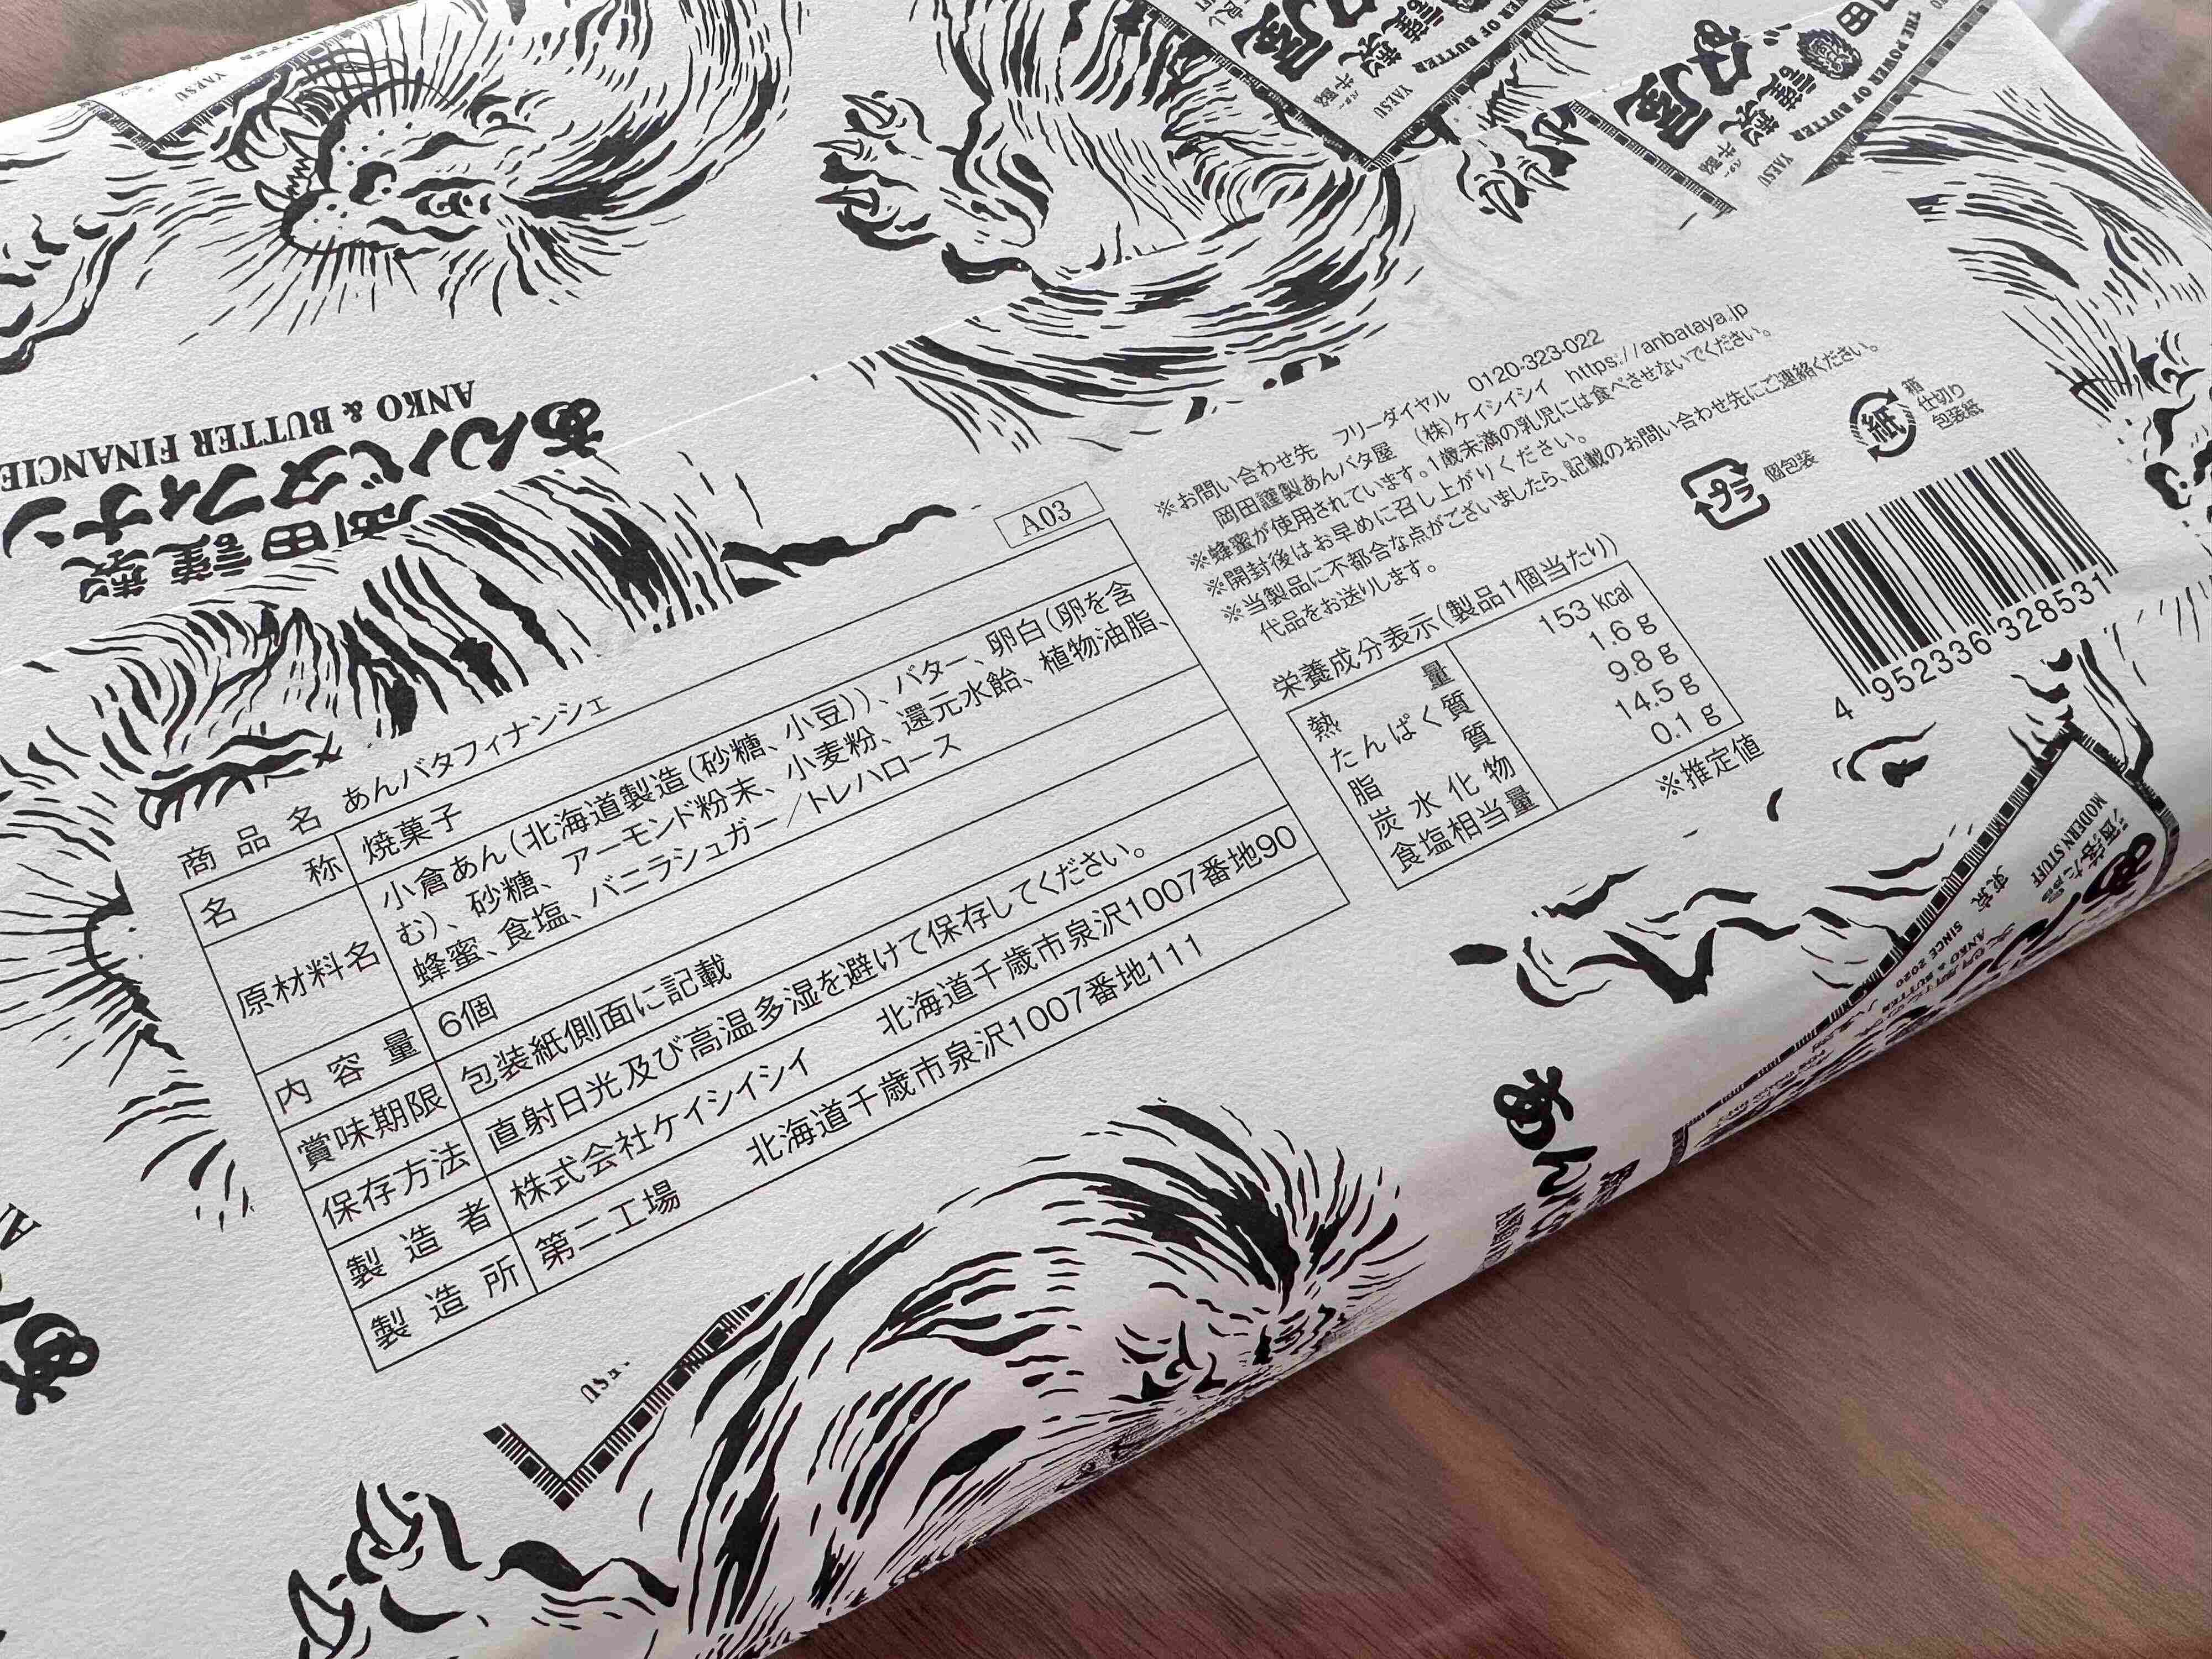 ANKO & BUTTER FINANCIE
あんバタフィナン
岡田謹製
THE POWER OF BUTTER
YAESU
A03
商品名 あんバタフィナンシェ
名称 焼菓子
原材料名 小倉あん(北海道製造(砂糖、小豆))、バター、卵白(卵を含
む)、砂糖、アーモンド粉末、小麦粉、還元水飴、植物油脂、
蜂蜜、食塩、バニラシュガー/トレハロース
内容量 6個
賞味期限 包装紙側面に記載
保存方法 直射日光及び高温多湿を避けて保存してください。
製造者 株式会社ケイシイシイ 北海道千歳市泉沢1007番地90
製造所 第二工場 北海道千歳市泉沢1007番地111
※お問い合わせ先 フリーダイヤル 0120-323-022
岡田謹製あんバタ屋 (株)ケイシイシイ https://anbataya.jp
※蜂蜜が使用されています。1歳未満の乳児には食べさせないでください。
※開封後はお早めに召し上がりください。
※当製品に不都合な点がございましたら、記載のお問い合わせ先にご連絡ください。
代品をお送りします。
栄養成分表示(製品1個当たり)
熱量 153 kcal
たんぱく質 1.6 g
脂質 9.8 g
炭水化物 14.5 g
食塩相当量 0.1 g
※推定値
プラ 個包装
紙 箱
仕切り
包装紙
4 952336 328531
MODERN STUFF
東京
ANKO & BUTTER
SINCE 2020